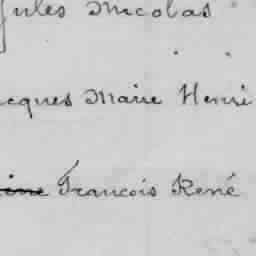 Jules Nicolas
acques Marie Henri
François René